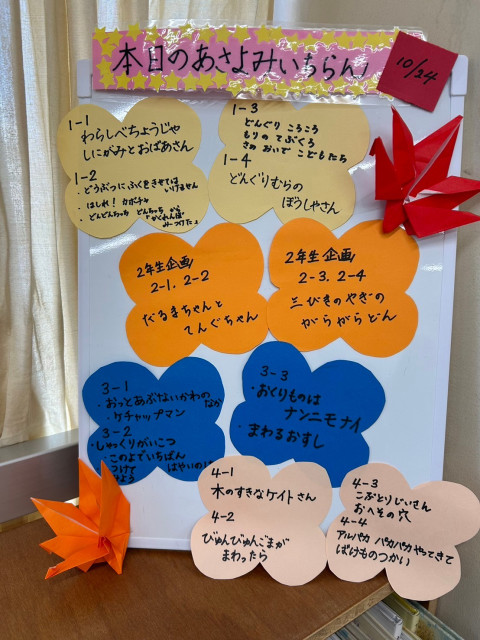 本日のあさよみいちらん♪
10/24
1-1
わらしべちょうじゃ
しにがみとおばあさん
1-2
・どうぶつにふくをきせてはいけません
・はしれ!カボチャ
・どんどんちっち どんちっち から
「かくれんぼ みーつけたよ
1-3
どんぐり ころころ
もりのてぶくろ
さあ おいで こどもたち
1-4
どんぐりむらの
ぼうしやさん
2年生企画
2-1, 2-2
だるまちゃんと
てんぐちゃん
2年生企画
2-3, 2-4
三びきのやぎの
がらがらどん
3-1
・おっとあぶないかわのなか
・ケチャップマン
3-2
・しゃっくりがいこつ
・このよでいちばん
はやいのは
つけて
よう
3-3
・おくりものは
ナンニモナイ
・まわるおすし
4-1
木のすきなケイトさん
4-2
びゅんびゅんごまが
まわったら
4-3
こぶとりじいさん
おへその穴
4-4
アルパカ パカパカやってきて
ばけものつかい